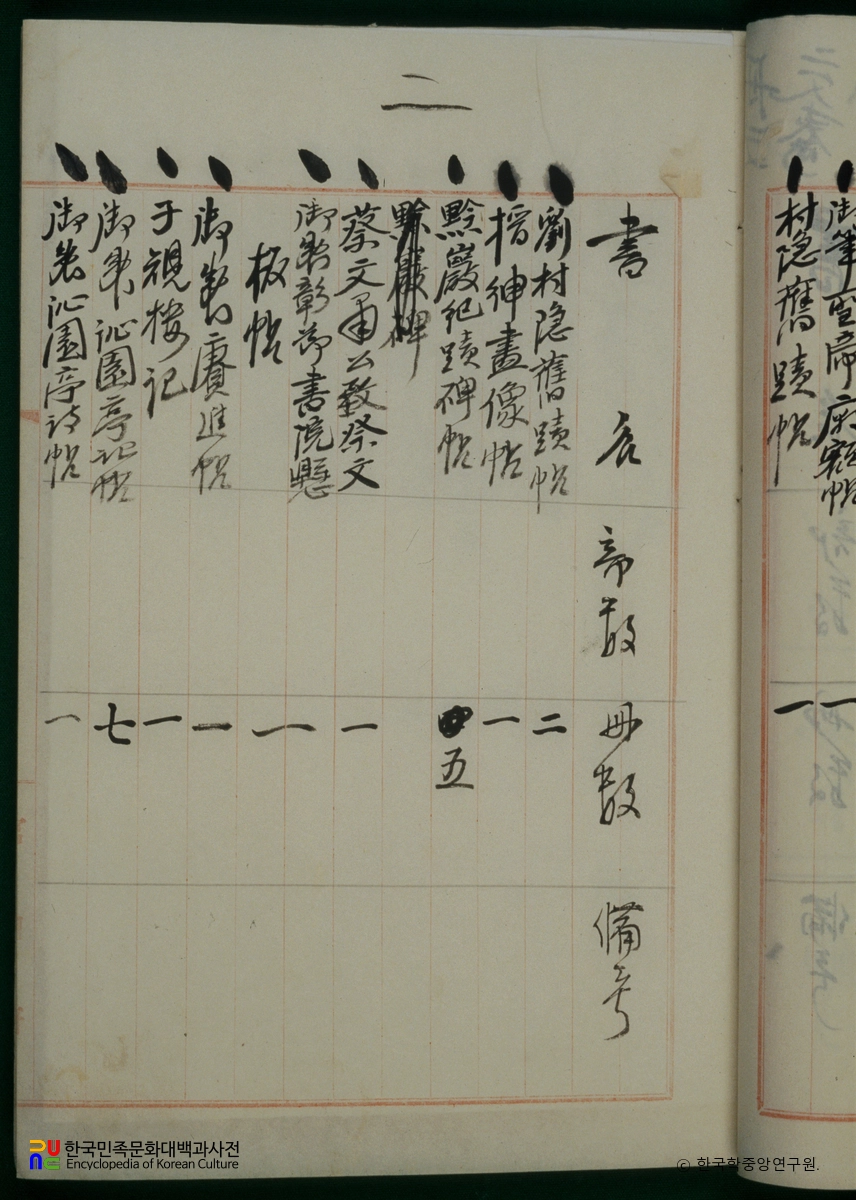 御筆聖帝廟額帖 一
村隱舊蹟帖 一
二
書名 數 冊數 備考
劉村隱舊蹟帖 二
搢紳畫像帖 一
黔巖紀蹟碑帖 五
黔巖碑
蔡文肅公致祭文 一
御製彰節書院懸
板帖 一
御製賡進帖 一
于視樓記 一
御筆沁園亭記帖 七
御製沁園亭詩帖 一
한국민족문화대백과사전
Encyclopedia of Korean Culture
© 한국학중앙연구원.